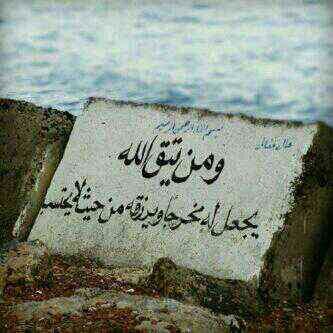 بسم الله الرحمن الرحيم
قال تعالى
ومن يتق الله
يجعل له مخرجا ويرزقه من حيث لا يحتسب